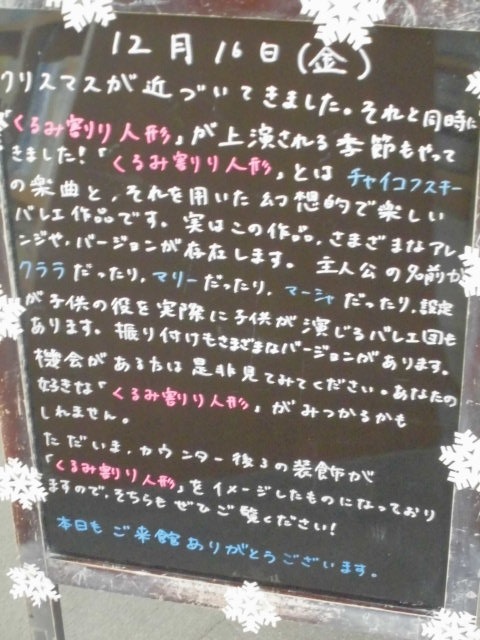 12月16日(金)
クリスマスが近づいてきました。それと同時に
「くるみ割り人形」が上演される季節もやって
きました!「くるみ割り人形」とは チャイコフスキー
の楽曲と、それを用いた幻想的で楽しい
バレエ作品です。実はこの作品、さまざまなアレ
ンジや、バージョンが存在します。主人公の名前が
クララだったり、マリーだったり、マーシャだったり、設定
が子供の役を実際に子供が演じるバレエ団も
あります。振り付けもさまざまなバージョンがあります。
機会がある方は是非見てみてください。あなたの
好きな「くるみ割り人形」がみつかるかも
しれません。
ただいま、カウンター後ろの装飾が
「くるみ割り人形」をイメージしたものになっており
ますので、そちらもぜひご覧ください!
本日もご来館ありがとうございます。